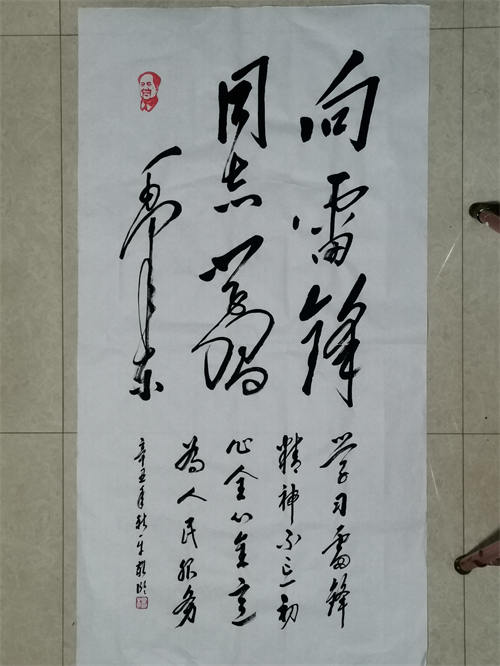 向雷锋
同志学习
毛泽东
学习雷锋
精神不忘初
心全心全意
为人民服务
辛丑年秋